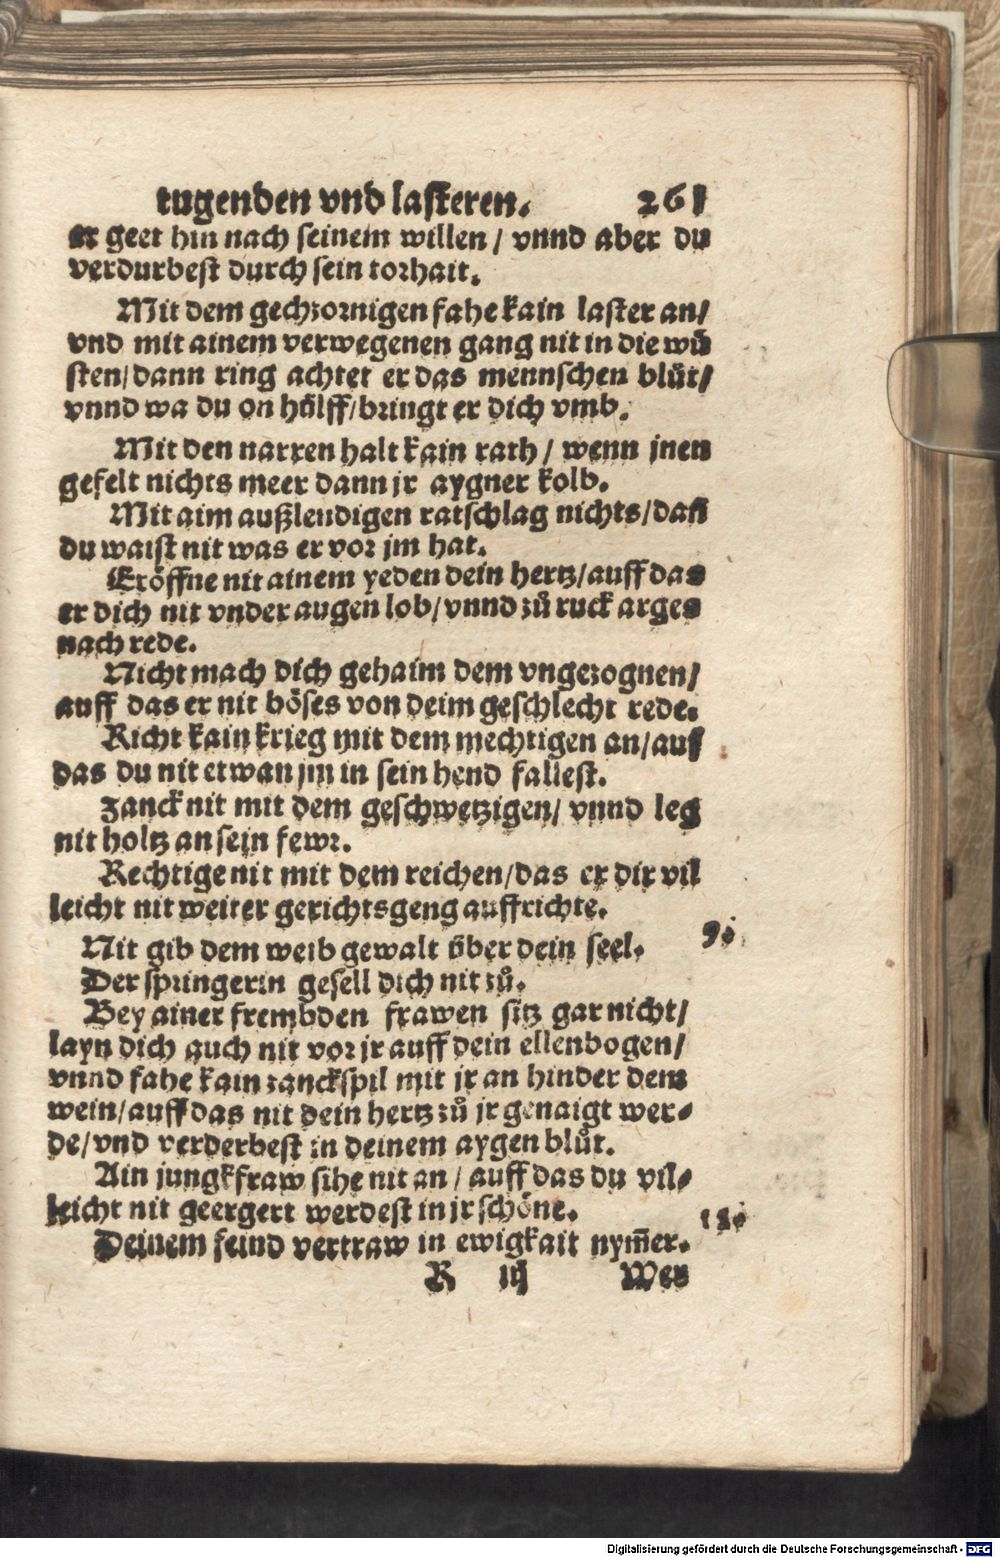 tugenden vnd lasteren. 261
er geet hin nach seinem willen / vnnd aber du
verdurbest durch sein torhait.
Mit dem gechzornigen fahe kain laster an/
vnd mit ainem verwegenen gang nit in die wů
sten/dann ring achtet er das mennschen blůt/
vnnd wa du on hülff/bringt er dich vmb.
Mit den narren halt kain rath / wenn jnen
gefelt nichts meer dann jr aygner kolb.
Mit aim außlendigen ratschlag nichts/dañ
du waist nit was er vor jm hat.
Eröffne nit ainem yeden dein hertz/auff das
er dich nit vnder augen lob/vnnd zů ruck arges
nach rede.
Nicht mach dich gehaim dem vngezognen/
auff das er nit böses von deim geschlecht rede.
Richt kain krieg mit dem mechtigen an/auf
das du nit etwan jm in sein hend fallest.
Zanck nit mit dem geschwetzigen/ vnnd leg
nit holtz an sein fewr.
Rechtige nit mit dem reichen/das er dir vil
leicht nit weiter gerichtsgeng auffrichte.
Nit gib dem weib gewalt über dein seel. 9.
Der springerin gesell dich nit zů.
Bey ainer frembden frawen sitz gar nicht/
layn dich auch nit vor jr auff dein ellenbogen/
vnnd fahe kain zanckspil mit jr an hinder dem
wein/auff das nit dein hertz zů jr genaigt wer-
de/vnd verderbest in deinem aygen blůt.
Ain jungkfraw sihe nit an / auff das du vil-
leicht nit geergert werdest in jr schöne.
Deinem feind vertraw in ewigkait nym̃er. 12.
R iij Wer
Digitalisierung gefördert durch die Deutsche Forschungsgemeinschaft - DFG